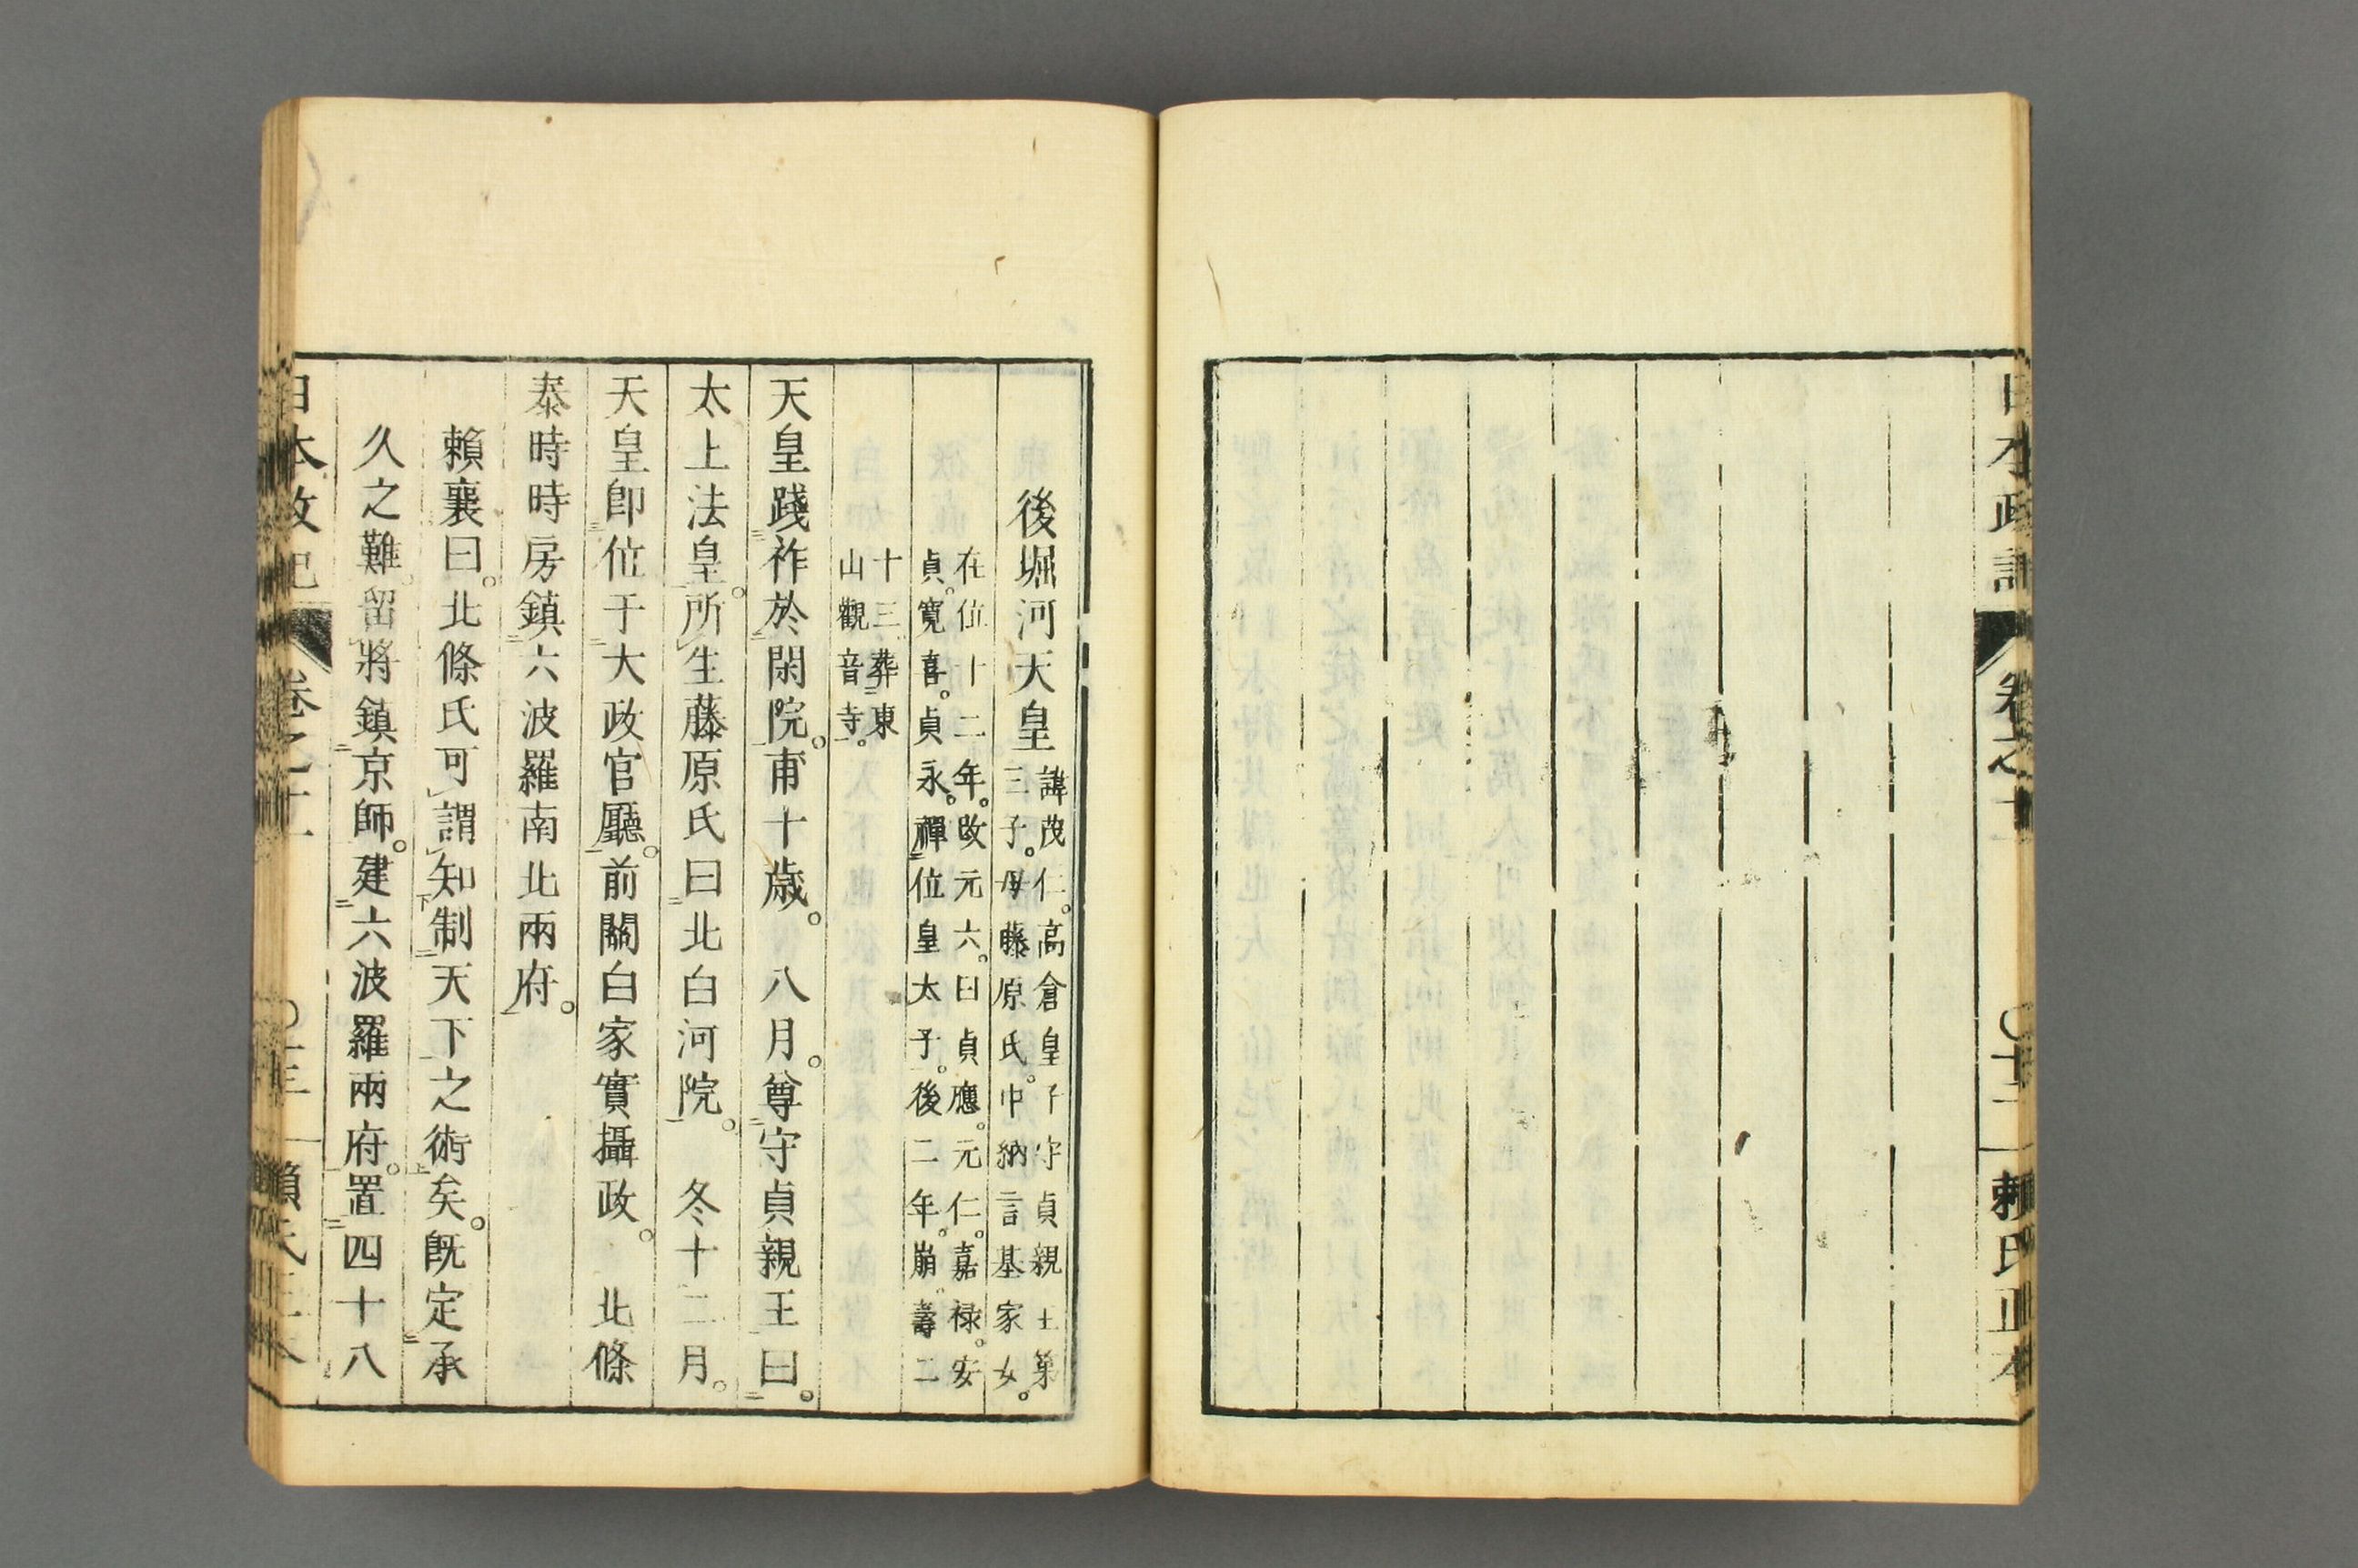 日本政記 卷之十 〇十二 賴氏正本
後堀河天皇
諱茂仁。高倉皇子守貞親王第
三子。母藤原氏。中納言基家女。
在位十二年。改元六。曰貞應。元仁。嘉禄。安
貞。寬喜。貞永。禪位皇太子。後二年。崩。壽二
十三葬東
山觀音寺。
天皇踐祚於閑院。甫十歲。 八月。尊守貞親王曰。
太上法皇。所生藤原氏曰北白河院。 冬十二月。
天皇卽位于大政官廳。前關白家實攝政。 北條
泰時時房鎮六波羅南北兩府。
賴襄曰。北條氏可謂知制天下之術矣。旣定承
久之難。留將鎮京師。建六波羅兩府。置四十八
日本政記 卷之十一 〇十三 賴氏正本